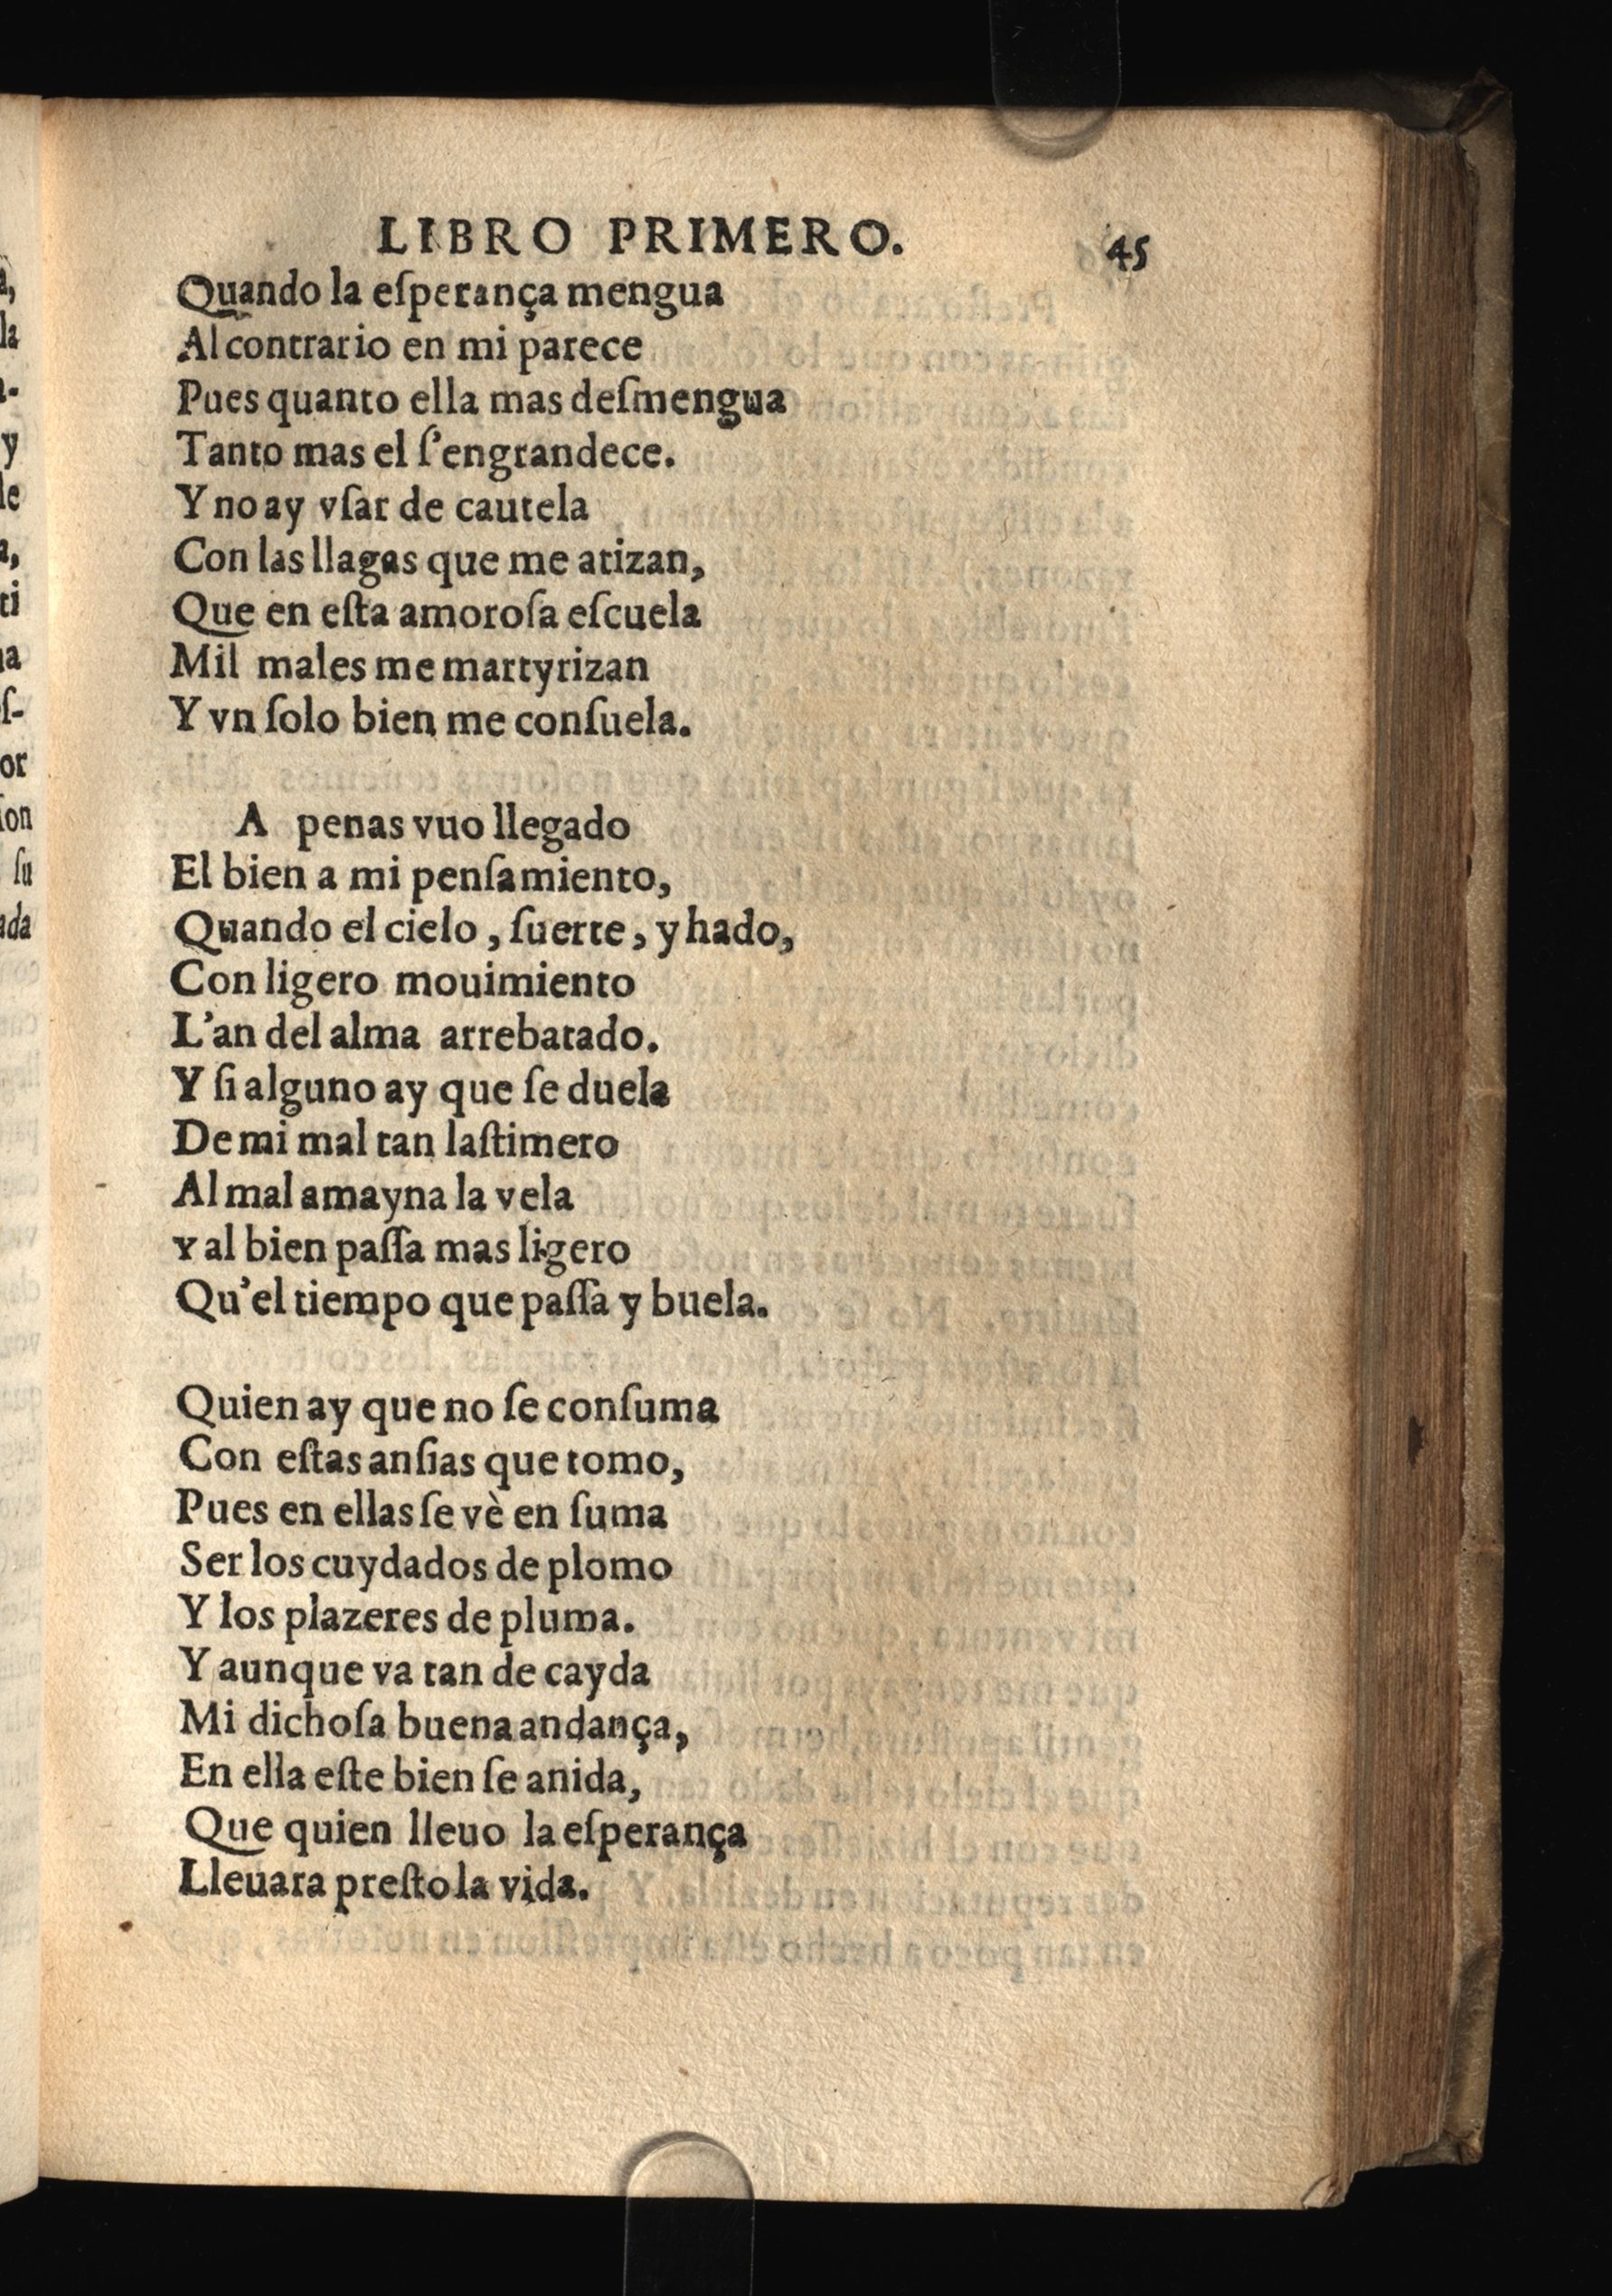 LIBRO PRIMERO. 45
Quando la eſperança mengua
Al contrario en mi parece
Pues quanto ella mas deſmengua
Tanto mas el ſ'engrandece.
Y no ay vſar de cautela
Con las llagas que me atizan,
Que en eſta amoroſa eſcuela
Mil males me martyrizan
Y vn ſolo bien me conſuela.
A penas vuo llegado
El bien a mi penſamiento,
Quando el cielo, ſuerte, y hado,
Con ligero mouimiento
L'an del alma arrebatado.
Y ſi alguno ay que ſe duela
De mi mal tan laſtimero
Al mal amayna la vela
Y al bien paſſa mas ligero
Qu'el tiempo que paſſa y buela.
Quien ay que no ſe conſuma
Con eſtas anſias que tomo,
Pues en ellas ſe vè en ſuma
Ser los cuydados de plomo
Y los plazeres de pluma.
Y aunque va tan de cayda
Mi dichoſa buena andança,
En ella eſte bien ſe anida,
Que quien lleuo la eſperança
Lleuara preſto la vida.